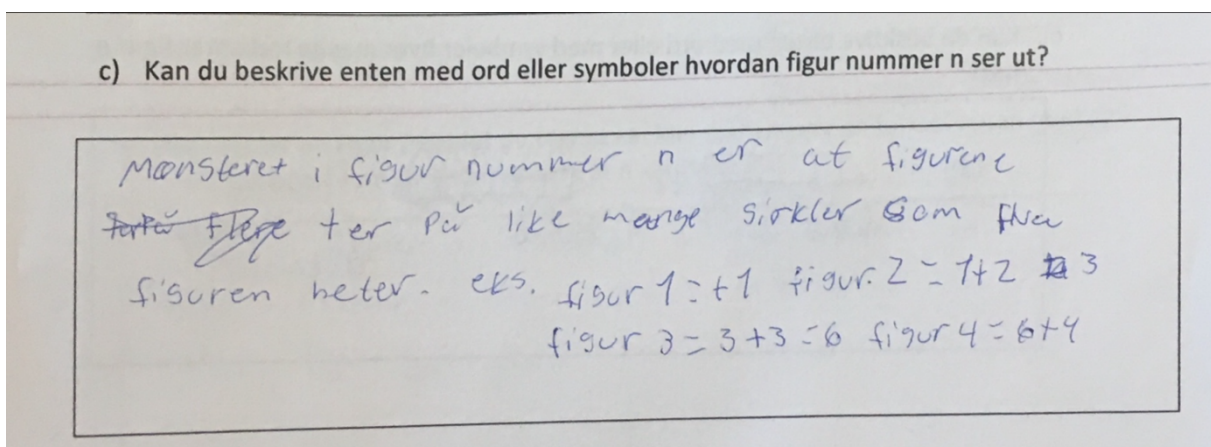 c) Kan du beskrive enten med ord eller symboler hvordan figur nummer n ser ut?
Mønsteret i figur nummer n er at figurene
ter på like mange sirkler som hva
figuren heter. eks. figur 1 = +1 figur. 2 = 1+2 3
figur 3 = 3+3 = 6 figur 4 = 6+4